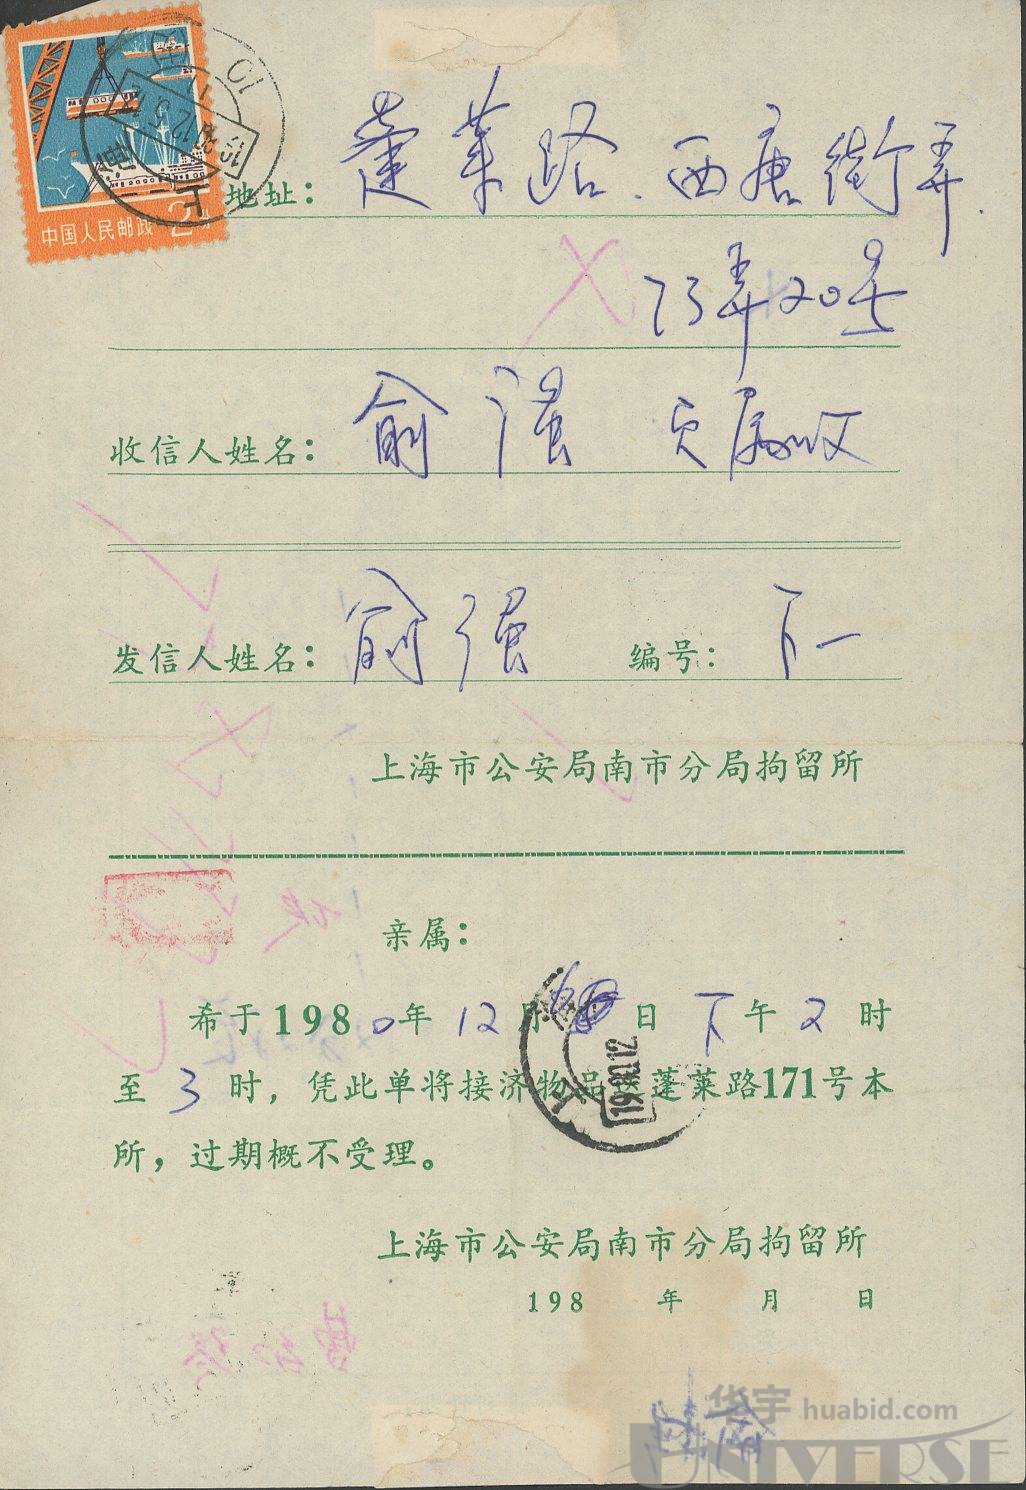 中国人民邮政 2
地址：蓬莱路.西唐街弄.
73弄20号
收信人姓名：俞强 家属收
发信人姓名：俞强 编号：下一
上海市公安局南市分局拘留所
亲属：
希于1980年12月 日下午2时
至3时，凭此单将接济物品送蓬莱路171号本
所，过期概不受理。
上海市公安局南市分局拘留所
198 年 月 日
华宇 huabid.com
UNIVERSE